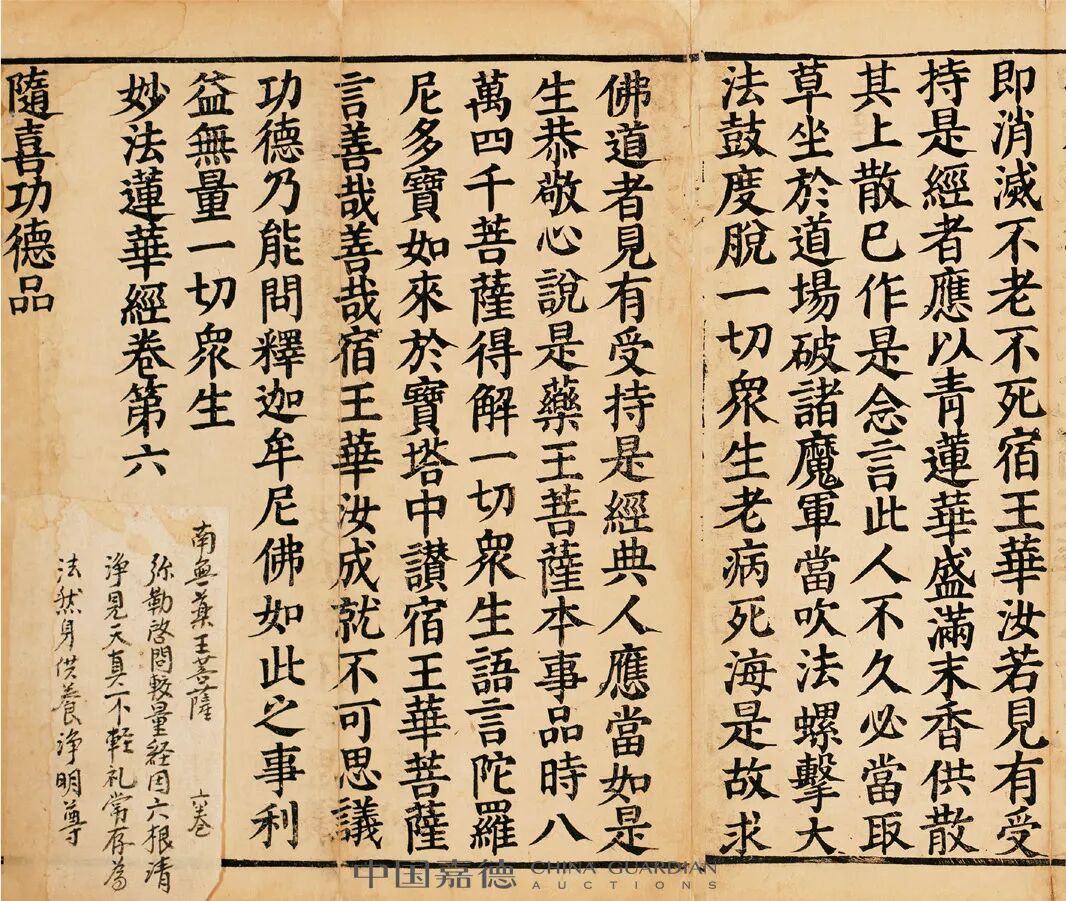 即消滅不老不死宿王華汝若見有受
持是經者應以青蓮華盛滿末香供散
其上散已作是念言此人不久必當取
草坐於道場破諸魔軍當吹法螺擊大
法鼓度脫一切衆生老病死海是故求
佛道者見有受持是經典人應當如是
生恭敬心說是藥王菩薩本事品時八
萬四千菩薩得解一切衆生語言陀羅
尼多寶如來於寶塔中讃宿王華菩薩
言善哉善哉宿王華汝成就不可思議
功德乃能問釋迦牟尼佛如此之事利
益無量一切衆生
妙法蓮華經卷第六
隨喜功德品
南無藥王菩薩 六卷
弥勒啓問較量経因六根清
淨見天真不軽礼常存為
法然身供養淨明尊
中国嘉德 CHINA GUARDIAN
AUCTIONS